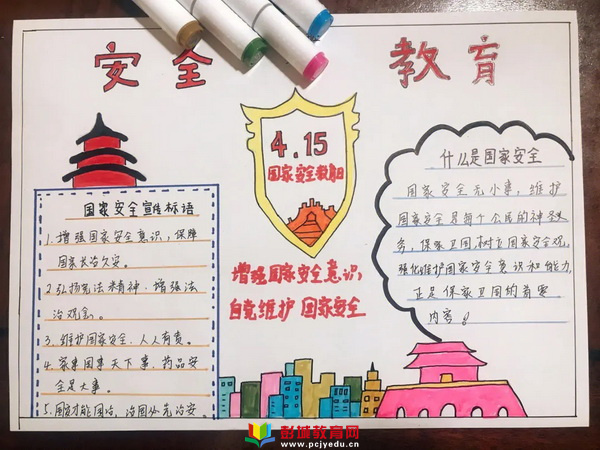 安全 教育
4.15
国家安全教育日
增强国家安全意识,
自觉维护 国家安全
国家安全宣传标语
1. 增强国家安全意识, 保障
国家长治久安。
2. 弘扬宪法精神, 增强法
治观念。
3. 维护国家安全, 人人有责。
4. 家事国事天下事, 药品安
全是大事。
5. 国家
什么是国家安全
国家安全无小事, 维护
国家安全是每个公民的神圣义
务, 保家卫国, 树立国家安全观,
强化维护国家安全意识和能力,
正是保家卫国的首要
内容。
彭城教育网
www.pcjyedu.cn